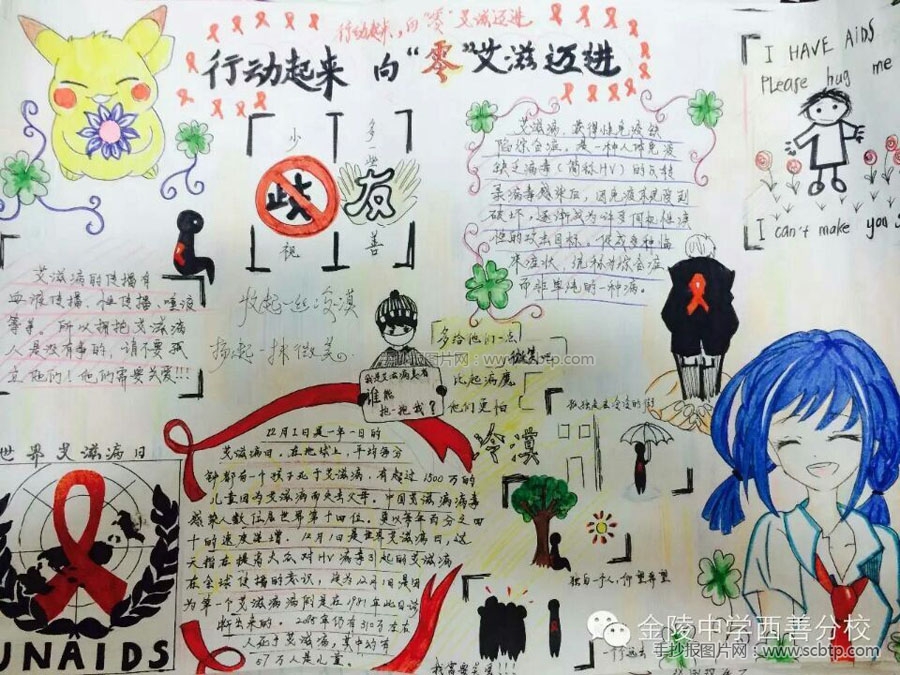 行动起来，向“零”艾滋迈进
行动起来 向“零”艾滋迈进
I HAVE AiDS
Please hug me
I can't make you s
少 多一些
歧 友
视 善
艾滋病,获得性免疫缺
陷综合症,是一种人体免疫
缺乏病毒(简称HIV)的反转
录病毒感染后,因免疫系统受到
破坏,逐渐成为许多伺机性疾
病的攻击目标,促成多种临
床症状,统称为综合症
而非单纯的一种病。
艾滋病的传播有
血液传播、性传播、唾液
等等。所以拥抱艾滋病
人是没有事的,请不要孤
立他们!他们需要关爱!!!
收起一丝冷漠
扬起一抹微笑
手抄报图片网:www.scbtp.com
我是艾滋病患者
谁能
抱一抱我?
多给他们一点
微笑
比起病魔
他们更怕
冷漠
世界艾滋病日
UNAIDS
12月1日是一年一日的
艾滋病日,在地球上,平均每分
钟都有一个孩子死于艾滋病,有超过1500万的
儿童因为艾滋病而失去父母。中国艾滋病病毒
感染人数位居世界第十四位,更以每年百分之四
十的速度递增。12月1日是世界艾滋病日,这
天旨在提高大众对HIV病毒引起的艾滋病
在全球传播的意识,定为12月1日是因
为第一个艾滋病病例是在1981年此日诊
断出来的。2005年仍有310万左右
人死于艾滋病,其中约有
57万人是儿童。
独自一个人,仰望希望
我需要关爱!!!
金陵中学西善分校
手抄报图片网：www.scbtp.com